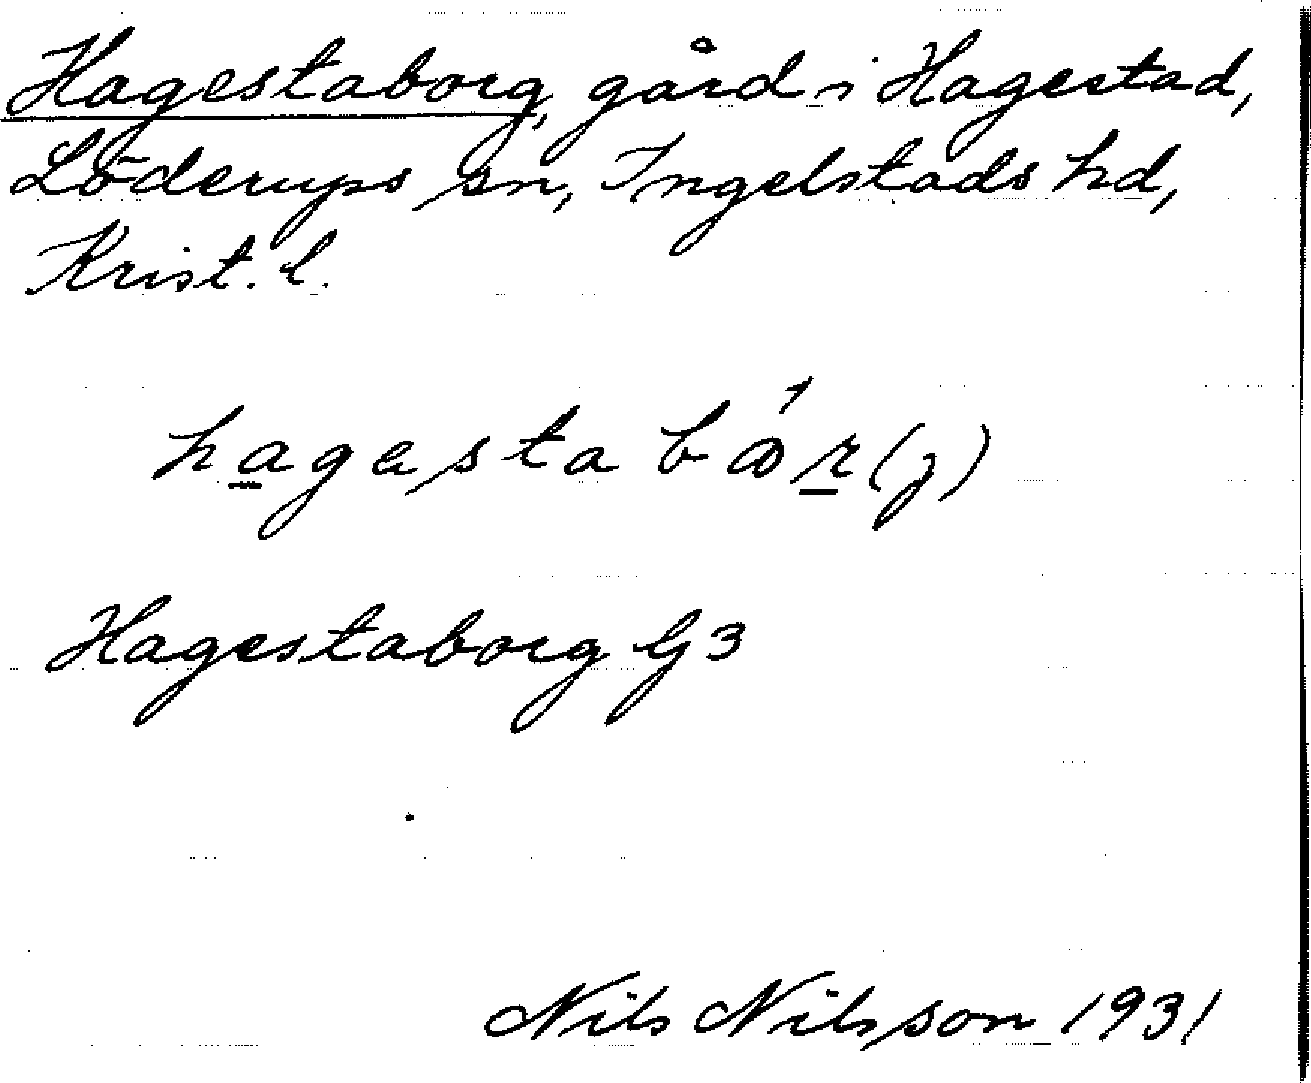 Hagestaborg, gård i Hagestad,
Löderups sn, Ingelstads hd,
Krist. l.
hagestabór(j)
Hagestaborg G3
Nils Nilsson 1931